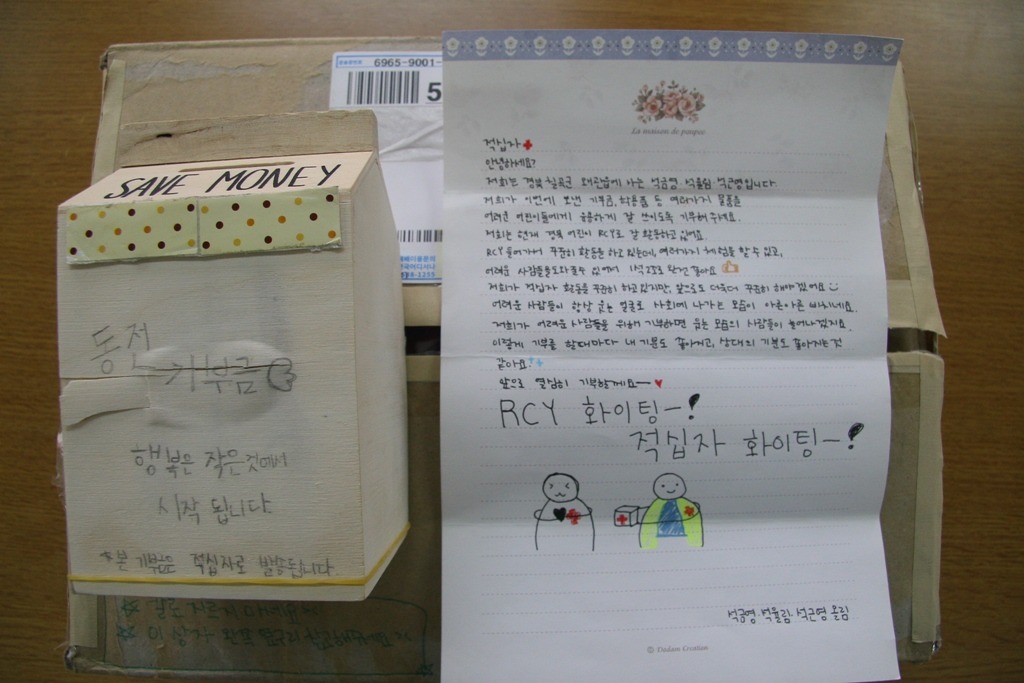 6965-9001-
5
SAVE MONEY
동전
기부금
행복은 작은것에서
시작 됩니다
*본 기부금은 적십자로 발송됩니다
La maison de poupee
적십자
안녕하세요?
저희는 경북 칠곡군 왜관읍에 사는 석금영·석율림·석근영입니다.
저희가 이번에 보낸 기부금, 학용품 등 여러가지 물품을
어려운 어린이들에게 유용하게 잘 쓰이도록 기부해주세요.
저희는 현재 경북 어린이 RCY로 잘 활동하고 있어요.
RCY 들어가서 꾸준히 활동을 하고 있는데, 여러가지 체험을 할 수 있고,
어려운 사람들을 도와줄 수 있어서 1석2조로 완전 좋아요
저희가 적십자 활동을 꾸준히 하고 있지만, 앞으로도 더욱더 꾸준히 해야겠어요
어려운 사람들이 항상 웃는 얼굴로 사회에 나가는 모습이 아른아른 비치네요.
저희가 어려운 사람들을 위해 기부하면 웃는 모습의 사람들이 늘어나겠지요.
이렇게 기부를 할때마다 내 기분도 좋아지고, 상대의 기분도 좋아지는 것
같아요.
앞으로 열심히 기부할게요ㅡ
RCY 화이팅ㅡ!
적십자 화이팅ㅡ!
석금영·석율림·석근영 올림
© Dadam Creation